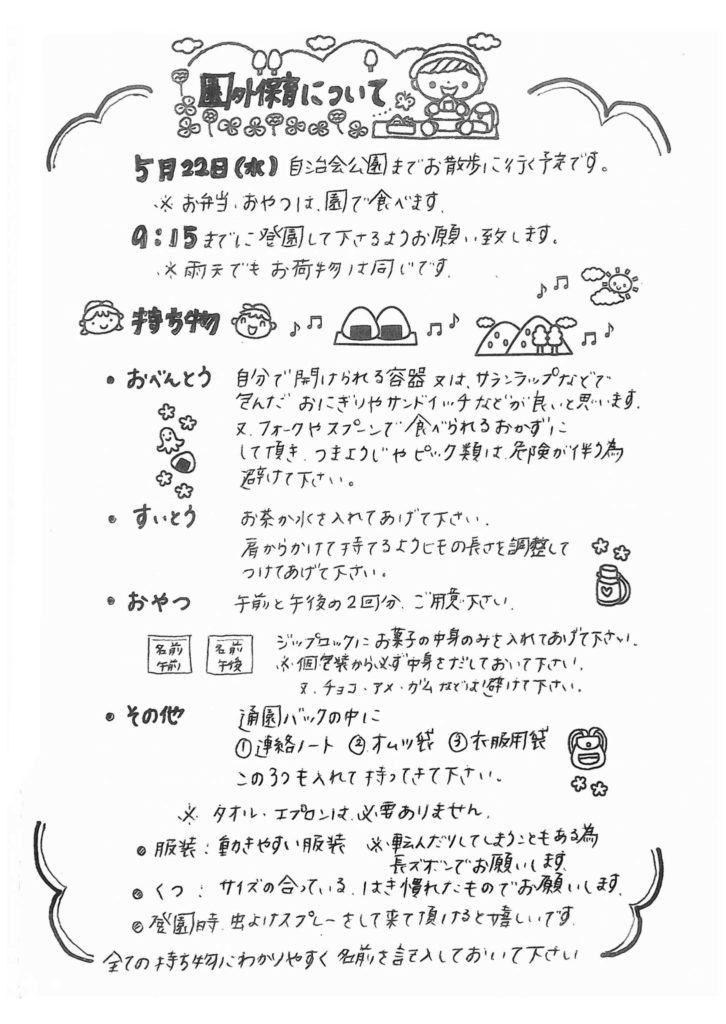 園外保育について
5月22日(水) 自治会公園までお散歩に行く予定です。
※ お弁当、おやつは、園で食べます。
9:15までに登園して下さるようお願い致します。
※雨天でもお荷物は同じです。
持ち物
• おべんとう 自分で開けられる容器 又は、サランラップなどで
包んだ おにぎりやサンドイッチなどが良いと思います。
又、フォークやスプーンで食べられるおかずに
して頂き、つまようじやピック類は、危険が伴う為
避けて下さい。
• すいとう お茶か水を入れてあげて下さい。
肩からかけて持てるようヒモの長さを調整して
つけてあげて下さい。
• おやつ 午前と午後の2回分、ご用意下さい。
名前 午前 名前 午後 ジップロックにお菓子の中身のみを入れてあげて下さい。
※個包装から必ず中身をだしておいて下さい。
又、チョコ・アメ・ガムなどは避けて下さい。
• その他 通園バックの中に
①連絡ノート ②オムツ袋 ③衣服用袋
この3つも入れて持ってきて下さい。
※ タオル・エプロンは、必要ありません。
• 服装: 動きやすい服装 ※転んだりしてしまうこともある為
長ズボンでお願いします。
• くつ: サイズの合っている、はき慣れたものでお願いします。
• 登園時、虫よけスプレーをして来て頂けると嬉しいです。
全ての持ち物にわかりやすく名前を記入しておいて下さい